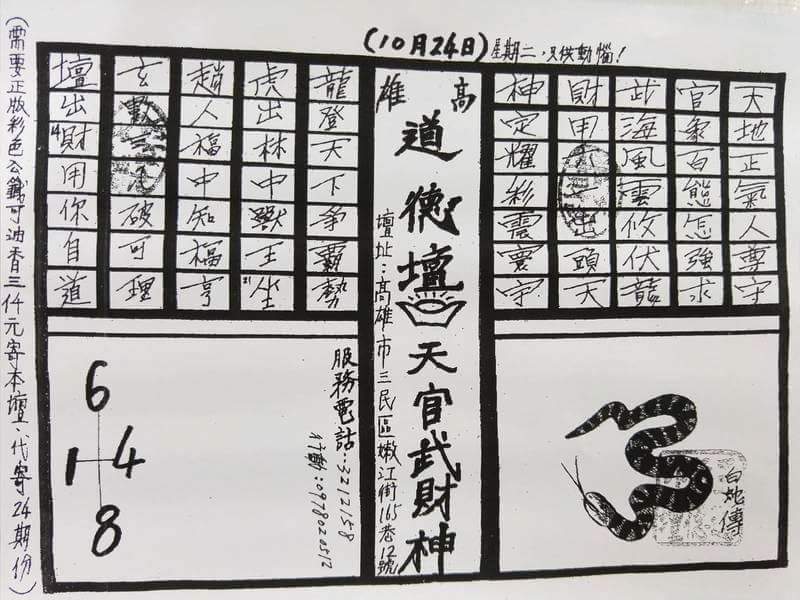 (10月24日)星期二,只供動惱!
天地正氣人尊守
官象百態怎強求
武海風雲攸伏龍
財甲
出頭天
神定耀彩震寰宇
高雄
道德壇
天官武財神
壇址:高雄市三民區嫩江街165巷12號
龍登天下爭霸勢
虎出林中獸王坐
趙人福中知福亨
玄數
破可理
壇出財用你自道
白蛇傳
服務電話:3212158
行動:0978020512
6
1-4
8
(需要正版彩色公籤可油香三仟元寄本壇.代寄24期份)